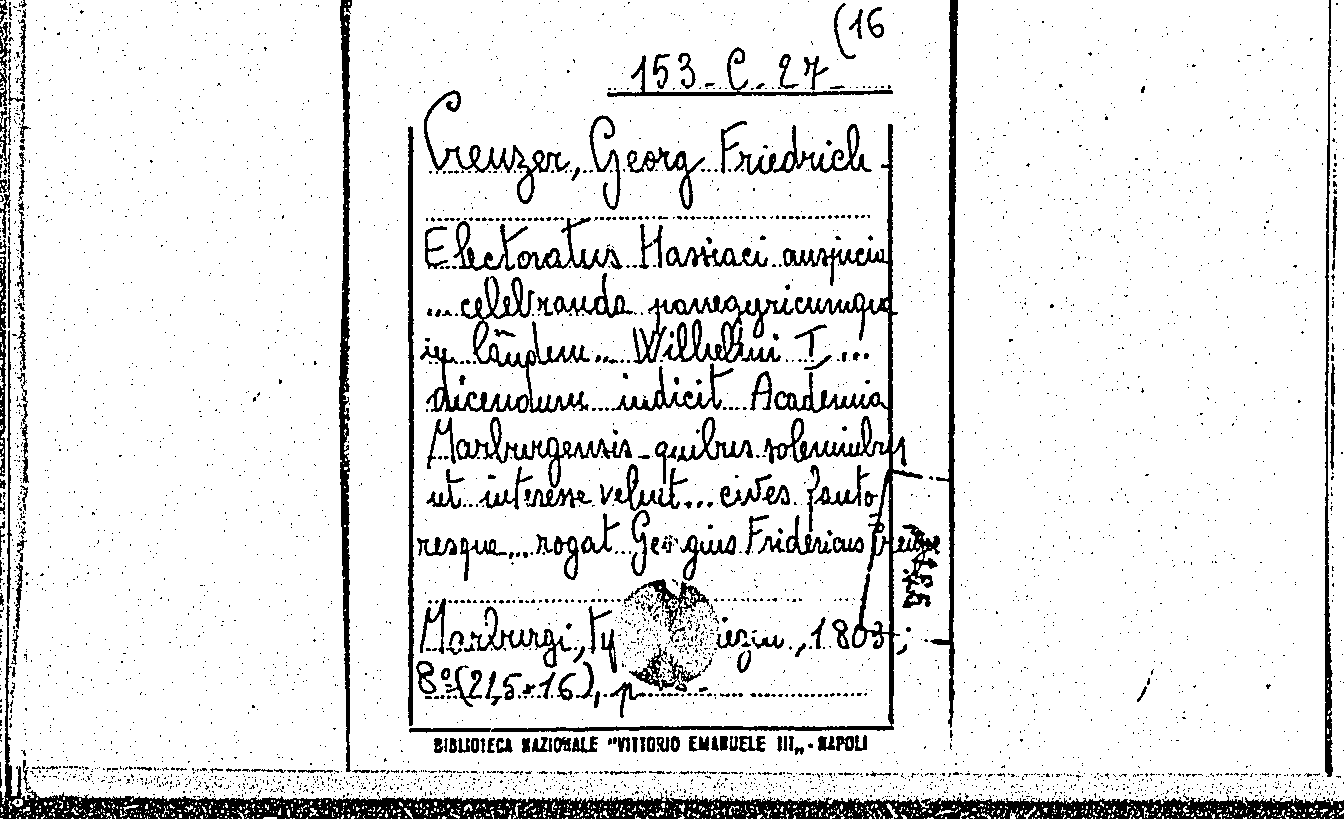 (16
153-C.27
Creuzer, Georg Friedrich -
Electoratus Hassiaci auspicia
... celebranda panegyricumque
in laudem... Wilhelmi I...
dicendum indicit Academia
Marburgensis - quibus solemnibus
ut interesse velint... cives fauto
resque... rogat Georgius Fridericus Creuzer
Marburgi, 1803;
8º (21,5×16), p
BIBLIOTECA NAZIONALE "VITTORIO EMANUELE III„ - NAPOLI